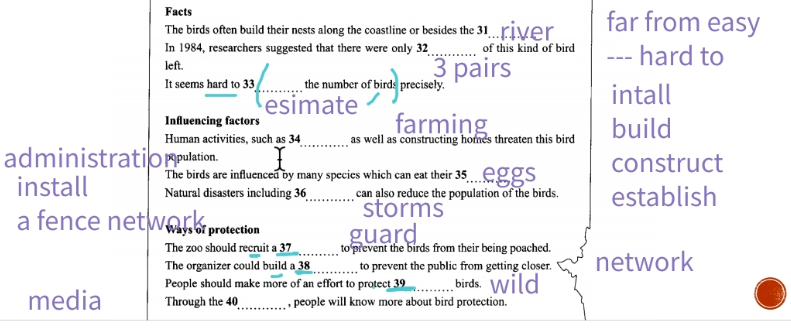 Facts
The birds often build their nests along the coastline or besides the 31............ river
In 1984, researchers suggested that there were only 32............ of this kind of bird
left.
3 pairs
It seems hard to 33............ the number of birds precisely.
esimate
Influencing factors
farming
Human activities, such as 34............ as well as constructing homes threaten this bird
population.
The birds are influenced by many species which can eat their 35............ eggs
Natural disasters including 36............ can also reduce the population of the birds.
storms
Ways of protection
guard
The zoo should recruit a 37............ to prevent the birds from their being poached.
The organizer could build a 38............ to prevent the public from getting closer.
People should make more of an effort to protect 39............ birds. wild
Through the 40............, people will know more about bird protection.
administration
install
a fence network
media
far from easy
--- hard to
intall
build
construct
establish
network